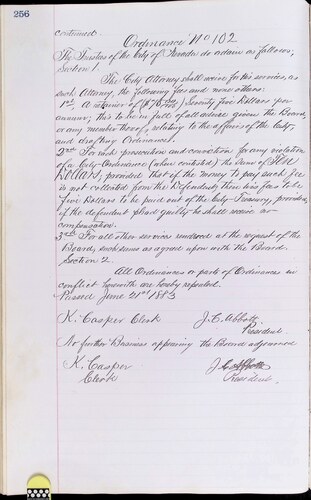 256
continued.
Ordinance No 102
The Trustees of the City of do ordain as follows;
Section 1.
The City Attorney shall receive for his services, as
such Attorney, the following fees and none others:
1st, A retainer of $75.00 Seventy five Dollars per
annum; this to be in full of all advice given the Board,
or any member thereof, relating to the affairs of the City,
and drafting Ordinances.
2nd For each prosecution and conviction for any violation
of a City Ordinance (when contested) the Sum of
Dollars; provided that if the money to pay such fee
is not collected from the Defendent, then his fee to be
five Dollars to be paid out of the City Treasury, provided,
if the defendent plead guilty he shall receive no
compensation.
3rd For all other services rendered at the request of the
Board, such sums as agreed upon with the Board.
Section 2.
All Ordinances or parts of Ordinances in
conflict herewith are hereby repealed.
Passed June 21st 1883
K. Casper Clerk J. C. Abbott
President
No further Business appearing the Board adjourned
K. Casper J. C. Abbott
Clerk President